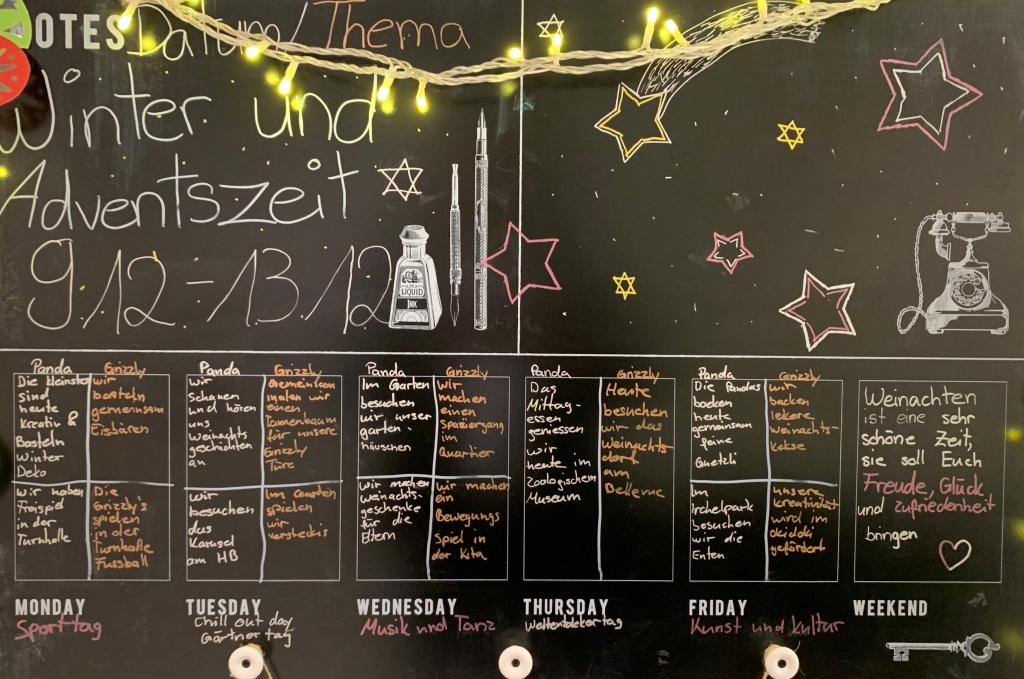 NOTES Datum/Thema
Winter und
Adventszeit
9.12 - 13.12
LIQUID
INK
Panda
Die kleinsten
sind
heute
kreativ &
Basteln
Winter
Deko
Wir haben
Freispiel
in der
Turnhalle
Grizzly
wir
basteln
gemeinsam
Eisbären
Die
Grizzly's
spielen
in der
Turnhalle
Fussball
MONDAY
Sporttag
Panda
wir
schauen
und hören
uns
weihnachts
geschichten
an
wir
besuchen
das
Karusel
am HB
Grizzly
Gemeinsam
malen wir
einen
Tannenbaum
für unsere
Grizzly
Türe
Im Garten
spielen
wir
versteckis
TUESDAY
Chill out day
Gärtner tag
Panda
Im Garten
besuchen
wir unser
garten-
häuschen
wir machen
weihnachts-
geschenke
für die
Eltern
Grizzly
Wir
machen
einen
Spaziergang
im
Quartier
wir machen
ein
Bewegungs
spiel in
der kita
WEDNESDAY
Musik und Tanz
Panda
Das
Mittag-
essen
geniessen
wir
heute im
Zoologischem
Museum
Grizzly
Heute
besuchen
wir das
Weihnachts-
dorf
am
Bellevue
THURSDAY
Weltentdeckertag
Panda
Die Pandas
backen
heute
gemeinsam
feine
Guetzli
Im
Irchelpark
besuchen
wir die
Enten
Grizzly
wir
backen
lekere
weihnachts-
kekse
unsere
kreativität
wird im
okidoki
gefördert
FRIDAY
Kunst und Kultur
Weinachten
ist eine sehr
schöne Zeit,
sie soll Euch
Freude, Glück
und zufriedenheit
bringen
WEEKEND